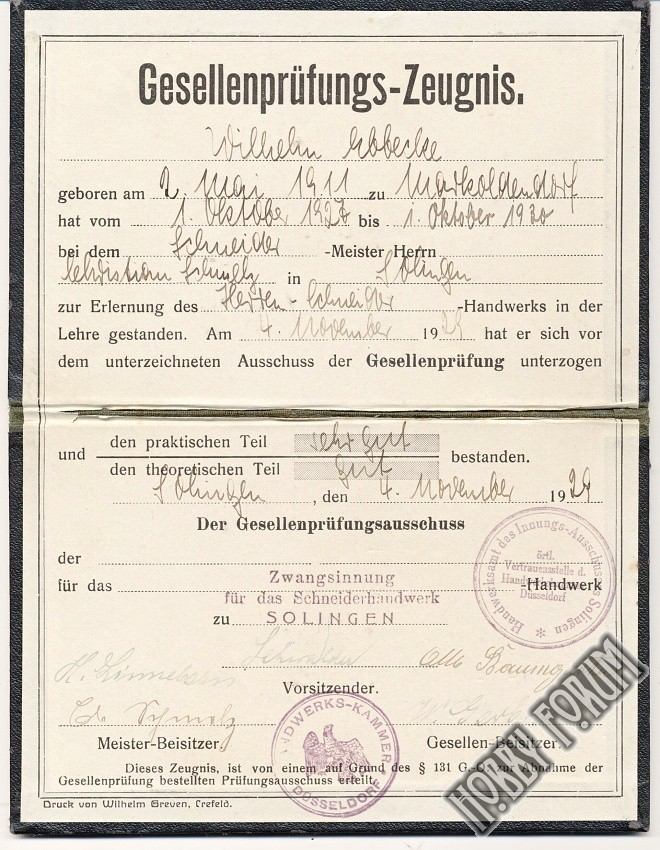 Gesellenprüfungs-Zeugnis.
Wilhelm Ebbecke
geboren am 2. Mai 1911 zu Markoldendorf
hat vom 1. Oktober 1926 bis 1. Oktober 1930
bei dem Schneider -Meister Herrn
Christian Schmelz in Solingen
zur Erlernung des Herren-Schneider -Handwerks in der
Lehre gestanden. Am 4. November 1929 hat er sich vor
dem unterzeichneten Ausschuss der Gesellenprüfung unterzogen
und den praktischen Teil sehr gut
den theoretischen Teil gut bestanden.
Solingen, den 4. November 1929
Der Gesellenprüfungsausschuss
der
für das Zwangsinnung -Handwerk
für das Schneiderhandwerk
zu SOLINGEN
Handwerksamt des Innungs-Ausschusses Solingen *
örtl.
Vertrauensstelle d.
Düsseldorf
Otto
Vorsitzender.
Meister-Beisitzer.
Gesellen-Beisitzer.
HANDWERKS-KAMMER
DÜSSELDORF
Dieses Zeugnis, ist von einem auf Grund des § 131 G.-O. zur Abnahme der
Gesellenprüfung bestellten Prüfungsausschuss erteilt.
Druck von Wilhelm Greven, Crefeld.